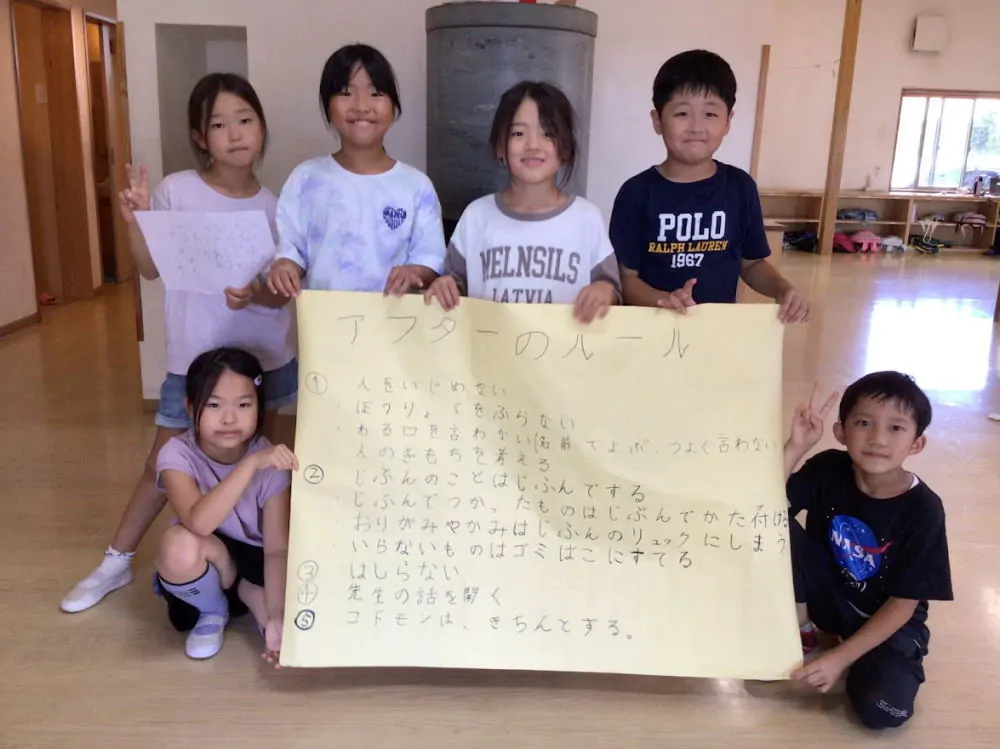 POLO
RALPH LAUREN
1967
MELNSILS
LATVIA
NASA
アフターのルール
① 人をいじめない
・ぼうりょくをふらない
・わる口を言わない(名前でよぶ、つよく言わない
・人のきもちを考える
② じぶんのことはじぶんでする
・じぶんでつかったものはじぶんでかた付ける
・おりがみやかみはじふんのリュックにしまう
・いらないものはゴミばこにすてる
③ はしらない
④ 先生の話を聞く
⑤ コドモンは、きちんとする。